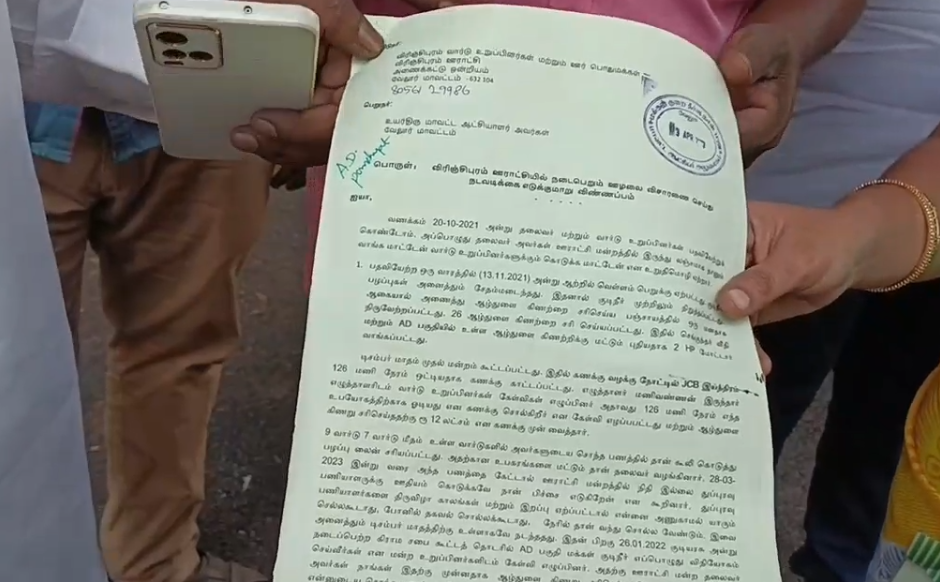 விரிஞ்சிபுரம் வார்டு உறுப்பினர்கள் மற்றும் ஊர் பொதுமக்கள்
விரிஞ்சிபுரம் ஊராட்சி
அணைக்கட்டு ஒன்றியம்
வேலூர் மாவட்டம் -632 104
பெறுநர்:
உயர்திரு மாவட்ட ஆட்சியாளர் அவர்கள்
வேலூர் மாவட்டம்
A.D.
பொருள்: விரிஞ்சிபுரம் ஊராட்சியில் நடைபெறும் ஊழலை விசாரணை செய்து
நடவடிக்கை எடுக்குமாறு விண்ணப்பம்
ஐயா,
வணக்கம் 20-10-2021 அன்று தலைவர் மற்றும் வார்டு உறுப்பினர்கள் பதவியேற்று
கொண்டோம். அப்பொழுது தலைவர் அவர்கள் ஊராட்சி மன்றத்தில் இருந்து லஞ்சமாக நானும்
வாங்க மாட்டேன் வார்டு உறுப்பினர்களுக்கும் கொடுக்க மாட்டேன் என உறுதிமொழி
1. பதவியேற்ற ஒரு வாரத்தில் (13.11.2021) அன்று ஆற்றில் வெள்ளம் பெருக்கு ஏற்பட்டு
பழப்புகள் அனைத்தும் சேதமடைந்தது. இதனால் குடிநீர் முற்றிலும்
ஆகையால் அனைத்து ஆழ்துளை கிணற்றை சரிசெய்ய பஞ்சாயத்தில்
திருவேற்றப்பட்டது. 26 ஆழ்துளை கிணற்றை சரி செய்யப்பட்டது. இதில்
மற்றும் AD பகுதியில் உள்ள ஆழ்துளை கிணற்றிக்கு மட்டும் புதியதாக 2 HP மோட்டார்
வாங்கப்பட்டது.
டிசம்பர் மாதம் முதல் மன்றம் கூட்டப்பட்டது. இதில் கணக்கு வழக்கு நோட்டில் JCB இயந்திரம்
126 மணி நேரம் ஓட்டியதாக கணக்கு காட்டப்பட்டது. எழுத்தாளர் மணிவண்ணன் இருந்தார்
எழுத்தாளரிடம் வார்டு உறுப்பினர்கள் கேள்விகள் எழுப்பினர் அதாவது 126 மணி நேரம் எந்த
உபயோகத்திற்காக ஓடியது என கணக்கு சொல்கிறீர் என கேள்வி எழுப்பபட்டது மற்றும் ஆழ்துளை
கிணறு சரிசெய்ததற்கு ரூ 12 லட்சம் என கணக்கு முன் வைத்தார்.
9 வார்டு 7 வார்டு மீதம் உள்ள வார்டுகளில் அவர்களுடைய சொந்த பணத்தில் தான் கூலி கொடுத்து
பழப்பு லைன் சரியப்பட்டது. அதற்கான உபகரங்களை மட்டும் தான் தலைவர் வழங்கினார். 28-03-
2023 இன்று வரை அந்த பணத்தை கேட்டால் ஊராட்சி மன்றத்தில் நிதி இல்லை துப்புரவு
பணியாளருக்கு ஊதியம் கொடுக்கவே நான் பிச்சை எடுகிறேன் என கூறினார். துப்புரவு
பணியாளர்களை திருவிழா காலங்கள் மற்றும் இறப்பு ஏற்பட்டால் என்னை அனுகாமல் யாரும்
செல்லகூடாது, போனில் தகவல் சொல்லக்கூடாது, நேரில் தான் வந்து சொல்ல வேண்டும். இவை
அனைத்தும் டிசம்பர் மாதத்திற்கு உள்ளாகவே நடந்ததது. இதன் பிறகு 26.01.2022 குடியரசு அன்று
நடைப்பெற்ற கிராம சபை கூட்டத் தொடரில் AD பகுதி மக்கள் குடிநீர் எப்பொழுது விநியோகம்
செய்வீர்கள் என மன்ற உறுப்பினர்களிடம் கேள்வி எழுப்பினர். அதற்கு ஊராட்சி மன்ற தலைவர்
அவர்கள் நாங்கள் இதற்கு முன்னதாக ஆழ்துளை கிணறு